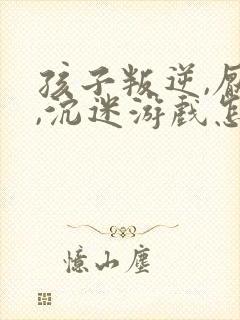 孩子叛逆,厌
,沉迷游戏怎
憶山塵